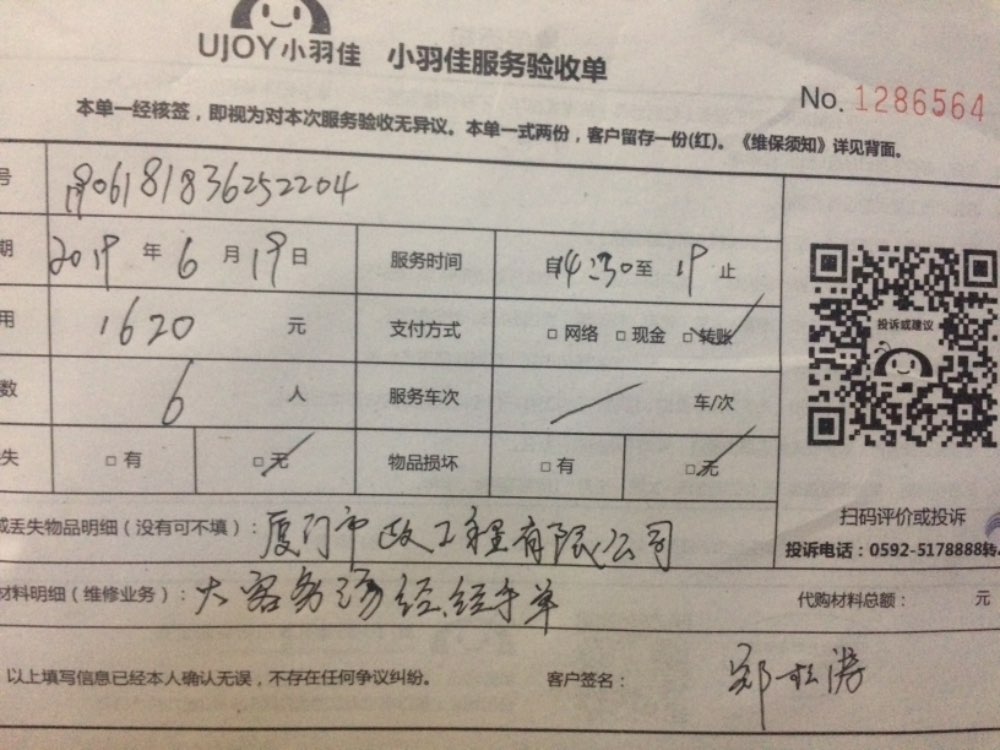 UJOY小羽佳 小羽佳服务验收单
No. 1286564
本单一经核签，即视为对本次服务验收无异议。本单一式两份，客户留存一份(红)。《维保须知》详见背面。
号 1906181836252204
期 2019 年 6 月 19 日 服务时间 自14:30至 19 止
用 1620 元 支付方式 □ 网络 □ 现金 □ 转账
数 6 人 服务车次 车/次
失 □ 有 □ 无 物品损坏 □ 有 □ 无
投诉或建议
扫码评价或投诉
投诉电话：0592-5178888转
或丢失物品明细（没有可不填）：厦门市政工程有限公司
材料明细（维修业务）：大客务 经,经手单 代购材料总额： 元
以上填写信息已经本人确认无误，不存在任何争议纠纷。 客户签名： 郑